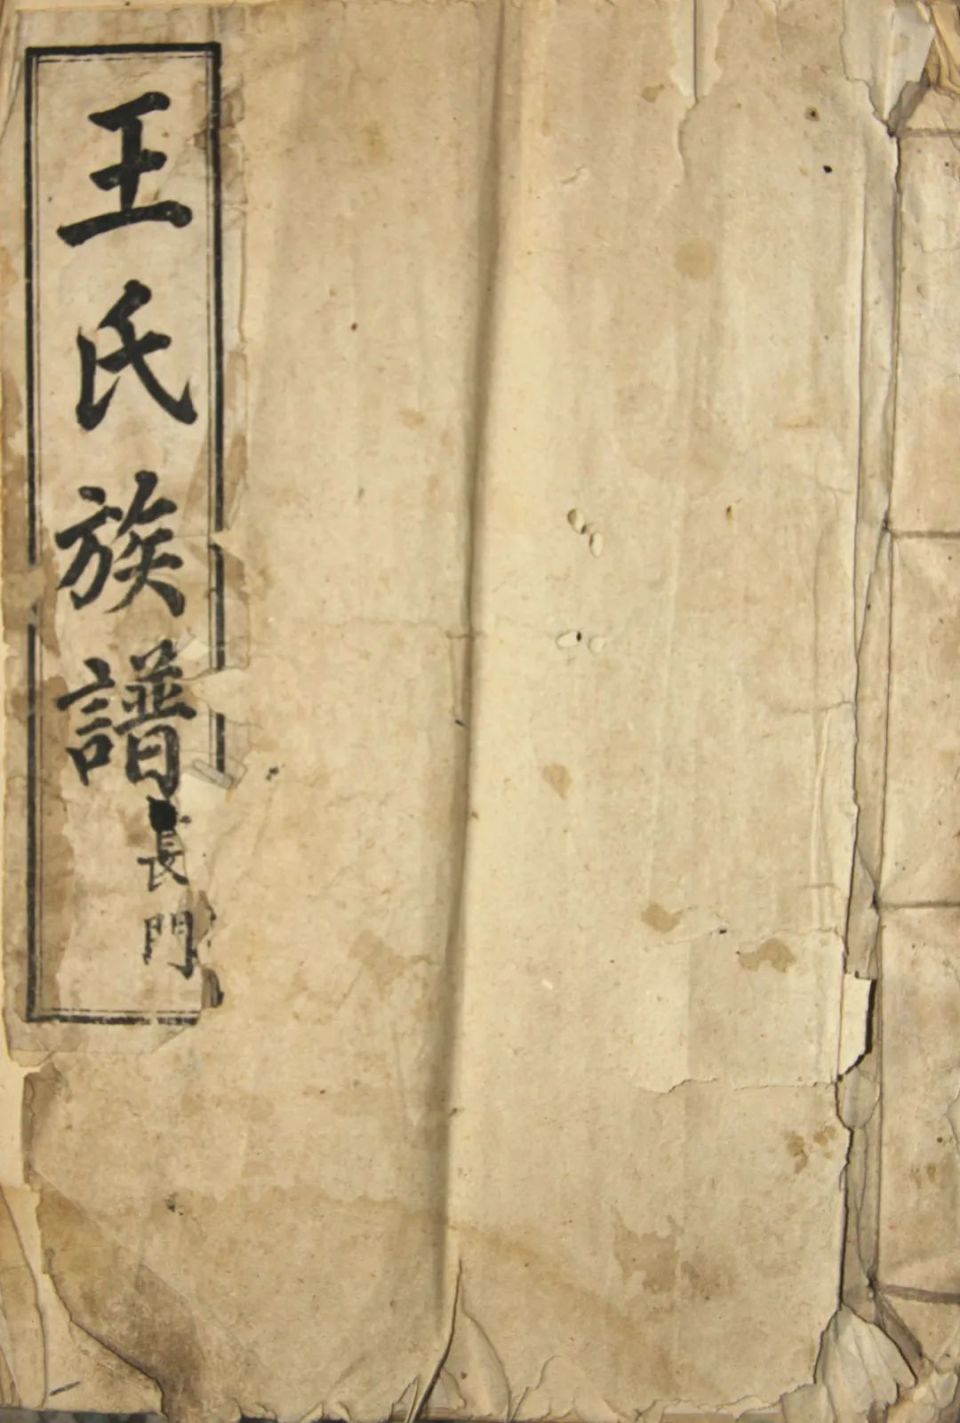 王氏族譜
長門